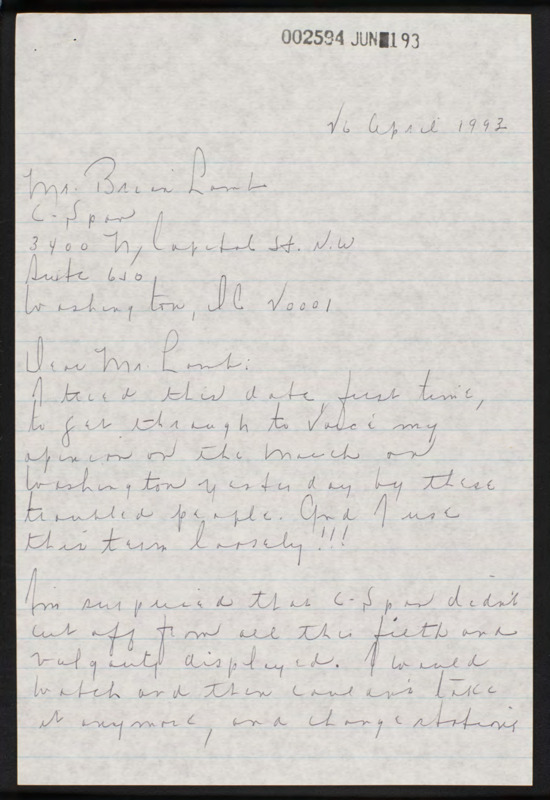 002594 JUN 1 93
26 April 1993
Mr. Brian Lamb
C-Span
3400 N, Capitol St. N.W
Suite 650
Washington, DC 20001
Dear Mr Lamb:
I tried this date, first time,
to get through to voice my
opinion on the March on
Washington yesterday by these
troubled people. And I use
this term loosely!!!
I'm surprised that C-Span didn't
cut off from all this filth and
vulgarity displayed. I would
watch and then couldn't take
it anymore, and change stations